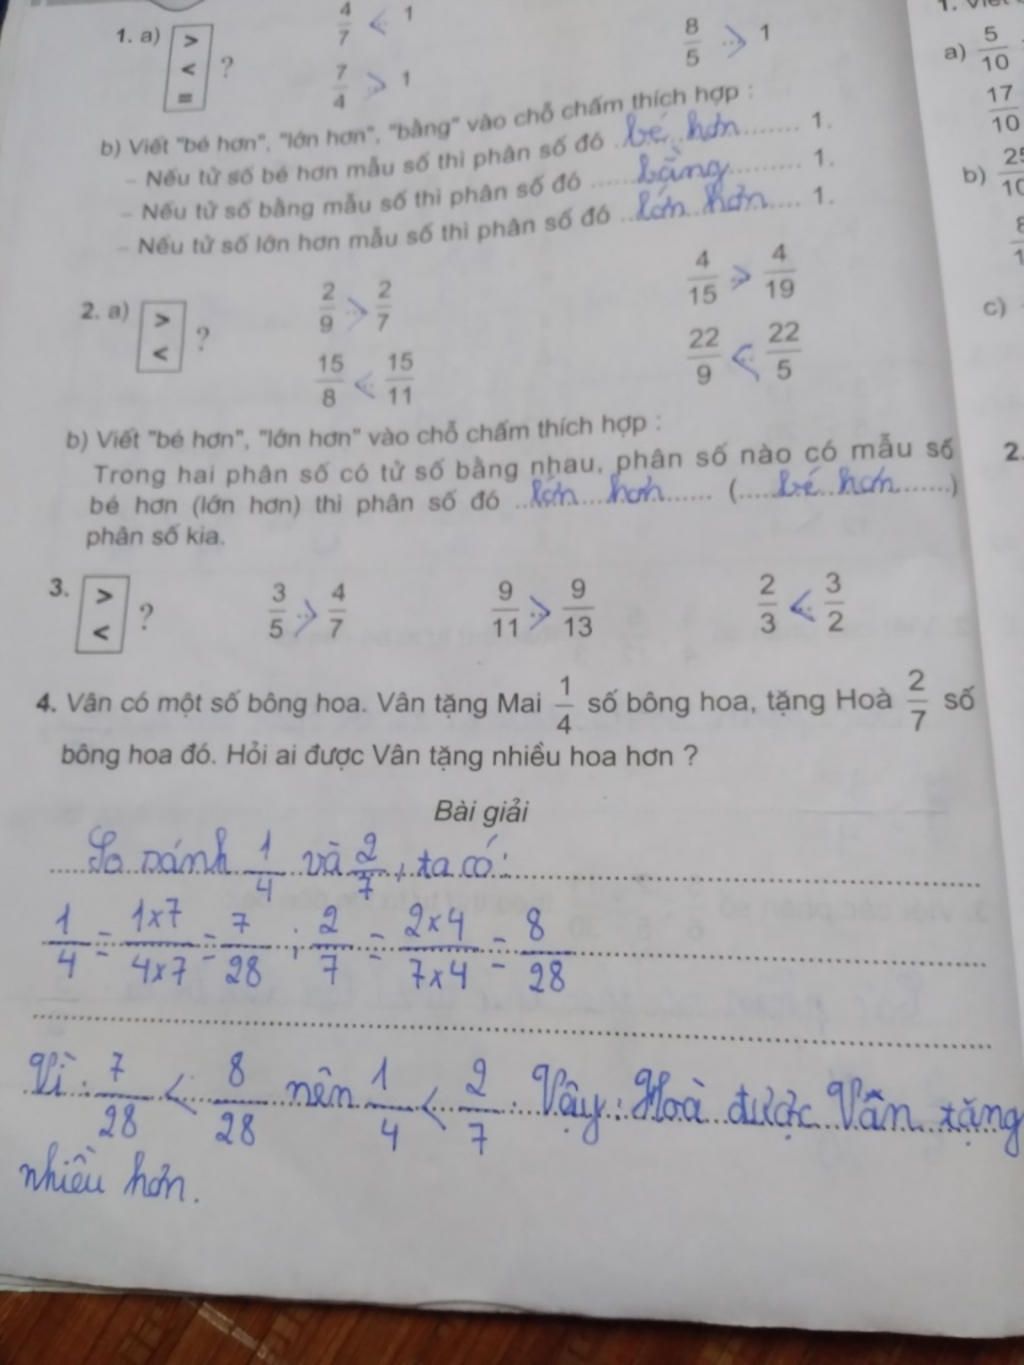 1. a) > < = ?
4/7 < 1
8/5 > 1
7/4 > 1
b) Viết "bé hơn", "lớn hơn", "bằng" vào chỗ chấm thích hợp :
– Nếu tử số bé hơn mẫu số thì phân số đó bé hơn 1.
– Nếu tử số bằng mẫu số thì phân số đó bằng 1.
– Nếu tử số lớn hơn mẫu số thì phân số đó lớn hơn 1.
2. a) > < ?
2/9 > 2/7
4/15 > 4/19
15/8 < 15/11
22/9 < 22/5
b) Viết "bé hơn", "lớn hơn" vào chỗ chấm thích hợp :
Trong hai phân số có tử số bằng nhau, phân số nào có mẫu số
bé hơn (lớn hơn) thì phân số đó lớn hơn (bé hơn)
phân số kia.
3. > < ?
3/5 > 4/7
9/11 > 9/13
2/3 < 3/2
4. Vân có một số bông hoa. Vân tặng Mai 1/4 số bông hoa, tặng Hoà 2/7 số
bông hoa đó. Hỏi ai được Vân tặng nhiều hoa hơn ?
Bài giải
So sánh 1/4 và 2/7, ta có:
1/4 = 1x7/4x7 = 7/28 ; 2/7 = 2x4/7x4 = 8/28
Vì: 7/28 < 8/28 nên 1/4 < 2/7. Vậy: Hoà được Vân tặng
nhiều hơn.
a) 5/10
17/10
b)
c)
2.